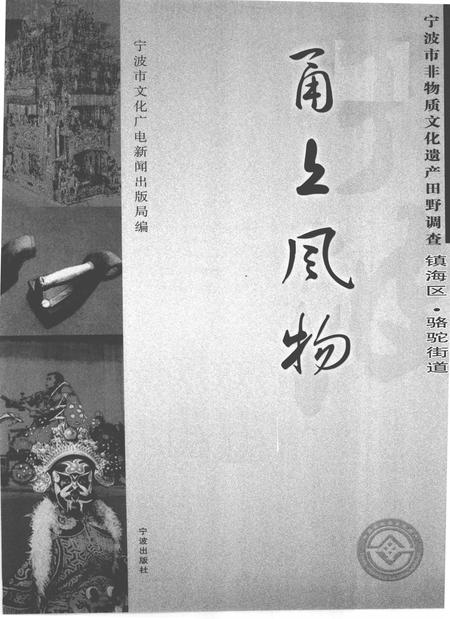 宁波市非物质文化遗产田野调查
镇海区·骆驼街道
甬上风物
宁波市文化广电新闻出版局编
宁波出版社